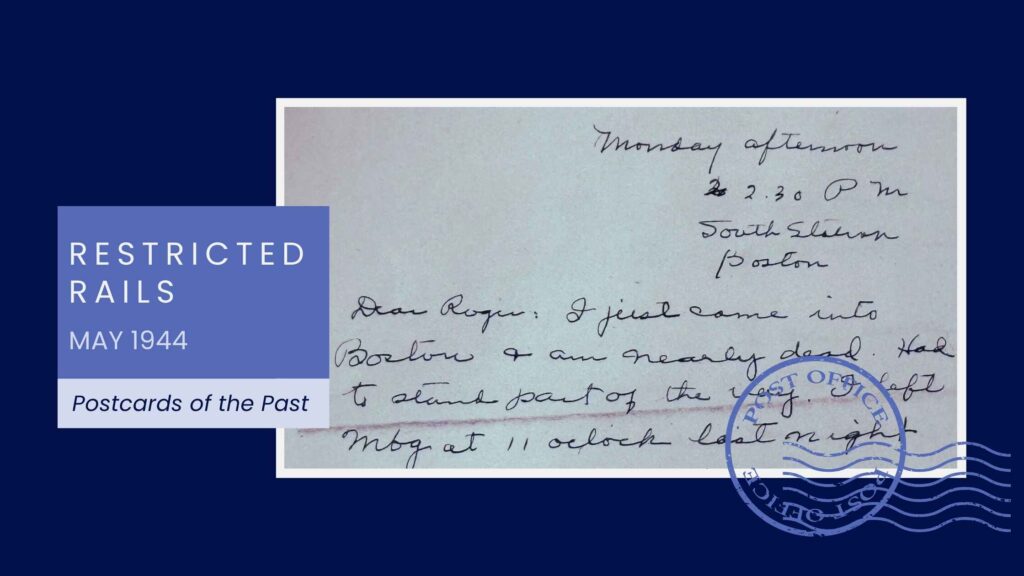 RESTRICTED
RAILS
MAY 1944
Postcards of the Past
Monday afternoon
2.30 P M
South Station
Boston
Dear Roger: I just came into
Boston & am nearly dead. Had
to stand part of the way. I left
Mbg at 11 oclock last night
POST OFFICE
POST OFFICE